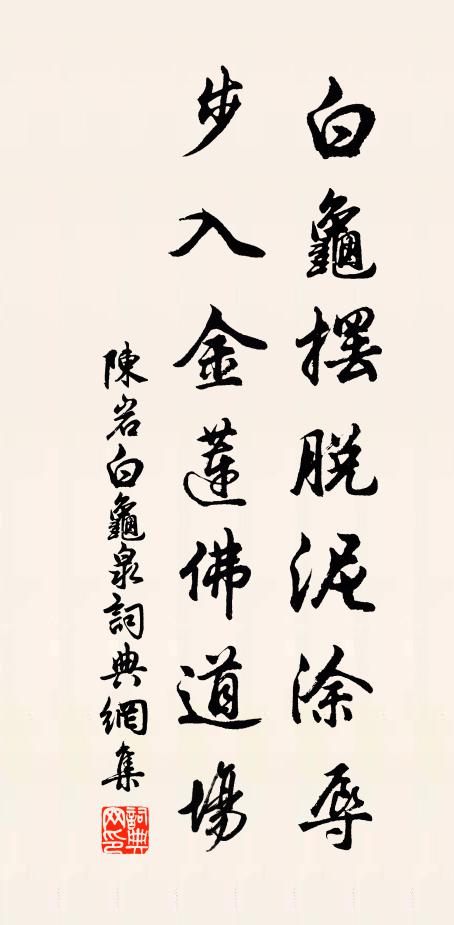 白龜擺脫泥涂辱
步入金蓮佛道場
陳岩白龜泉詞典網集
詞典網印